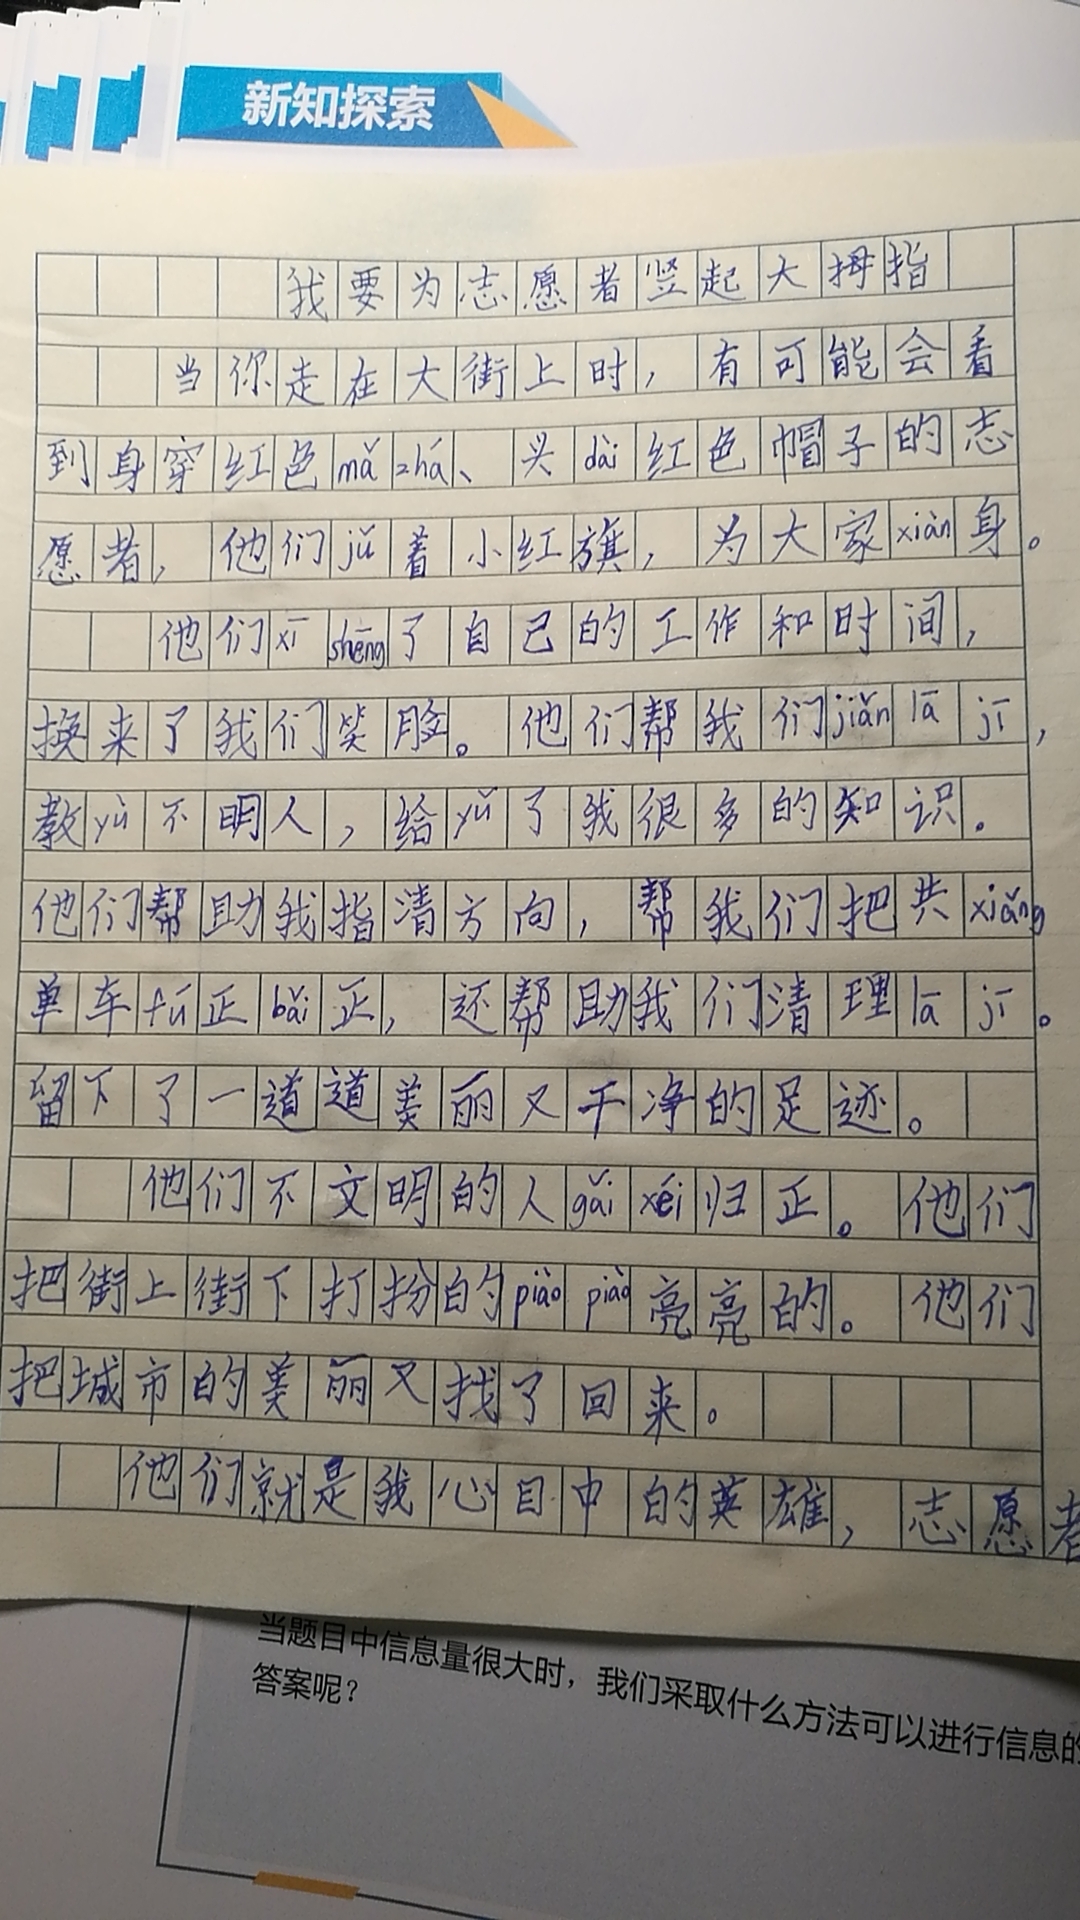 新知探索
我要为志愿者竖起大拇指
当你走在大街上时，有可能会看
到身穿红色mǎ zhá、头dài红色帽子的志
愿者，他们jǔ着小红旗，为大家xiàn身。
他们xī shēng了自己的工作和时间，
换来了我们笑脸。他们帮我们jiǎn lā jī，
教yù不明人，给yǔ了我很多的知识。
他们帮助我指清方向，帮我们把共xiǎng
单车fú正bǎi正，还帮助我们清理lā jī。
留下了一道道美丽又干净的足迹。
他们不文明的人gǎi xéi归正。他们
把街上街下打扮的piào piào亮亮的。他们
把城市的美丽又找了回来。
他们就是我心目中的英雄，志愿者
当题目中信息量很大时，我们采取什么方法可以进行信息的
答案呢？